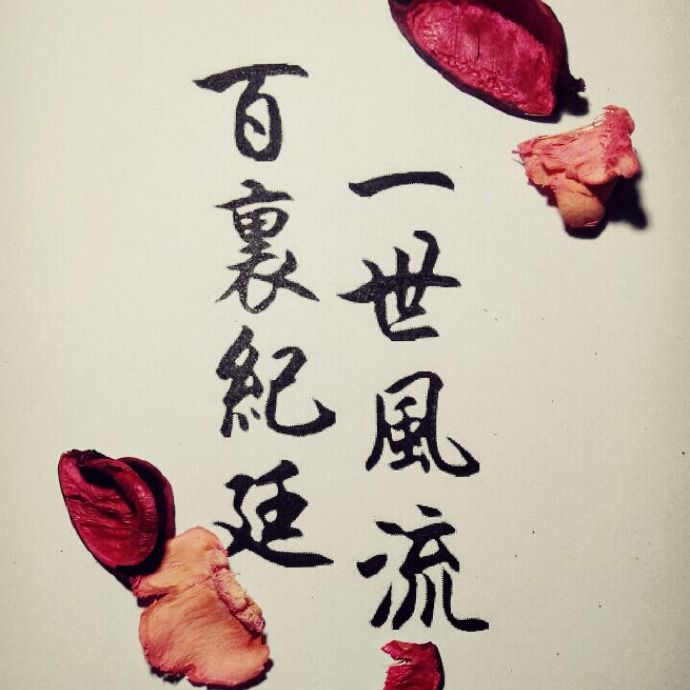 一世風流
百裏紀廷